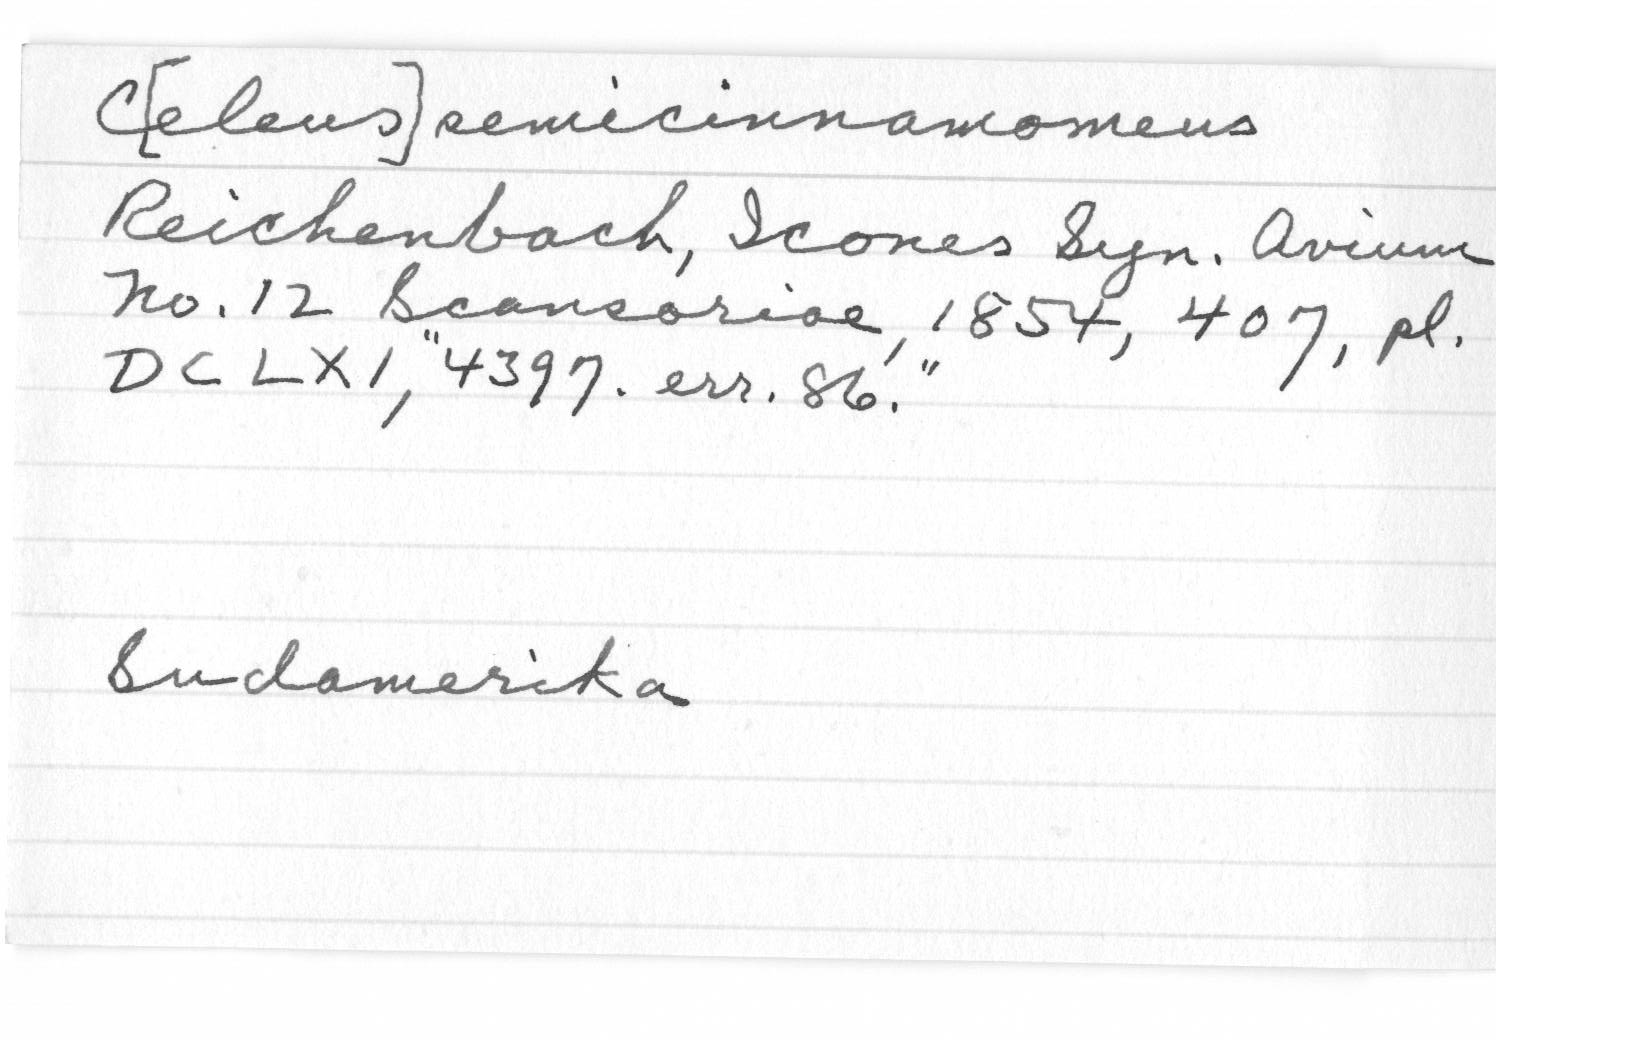 C[eleus] semicinnamomeus
Reichenbach, Icones Syn. Avium
No. 12 Scansoriae, 1854, 407, pl.
DCLXI, "4397. err. 86."
Sudamerika